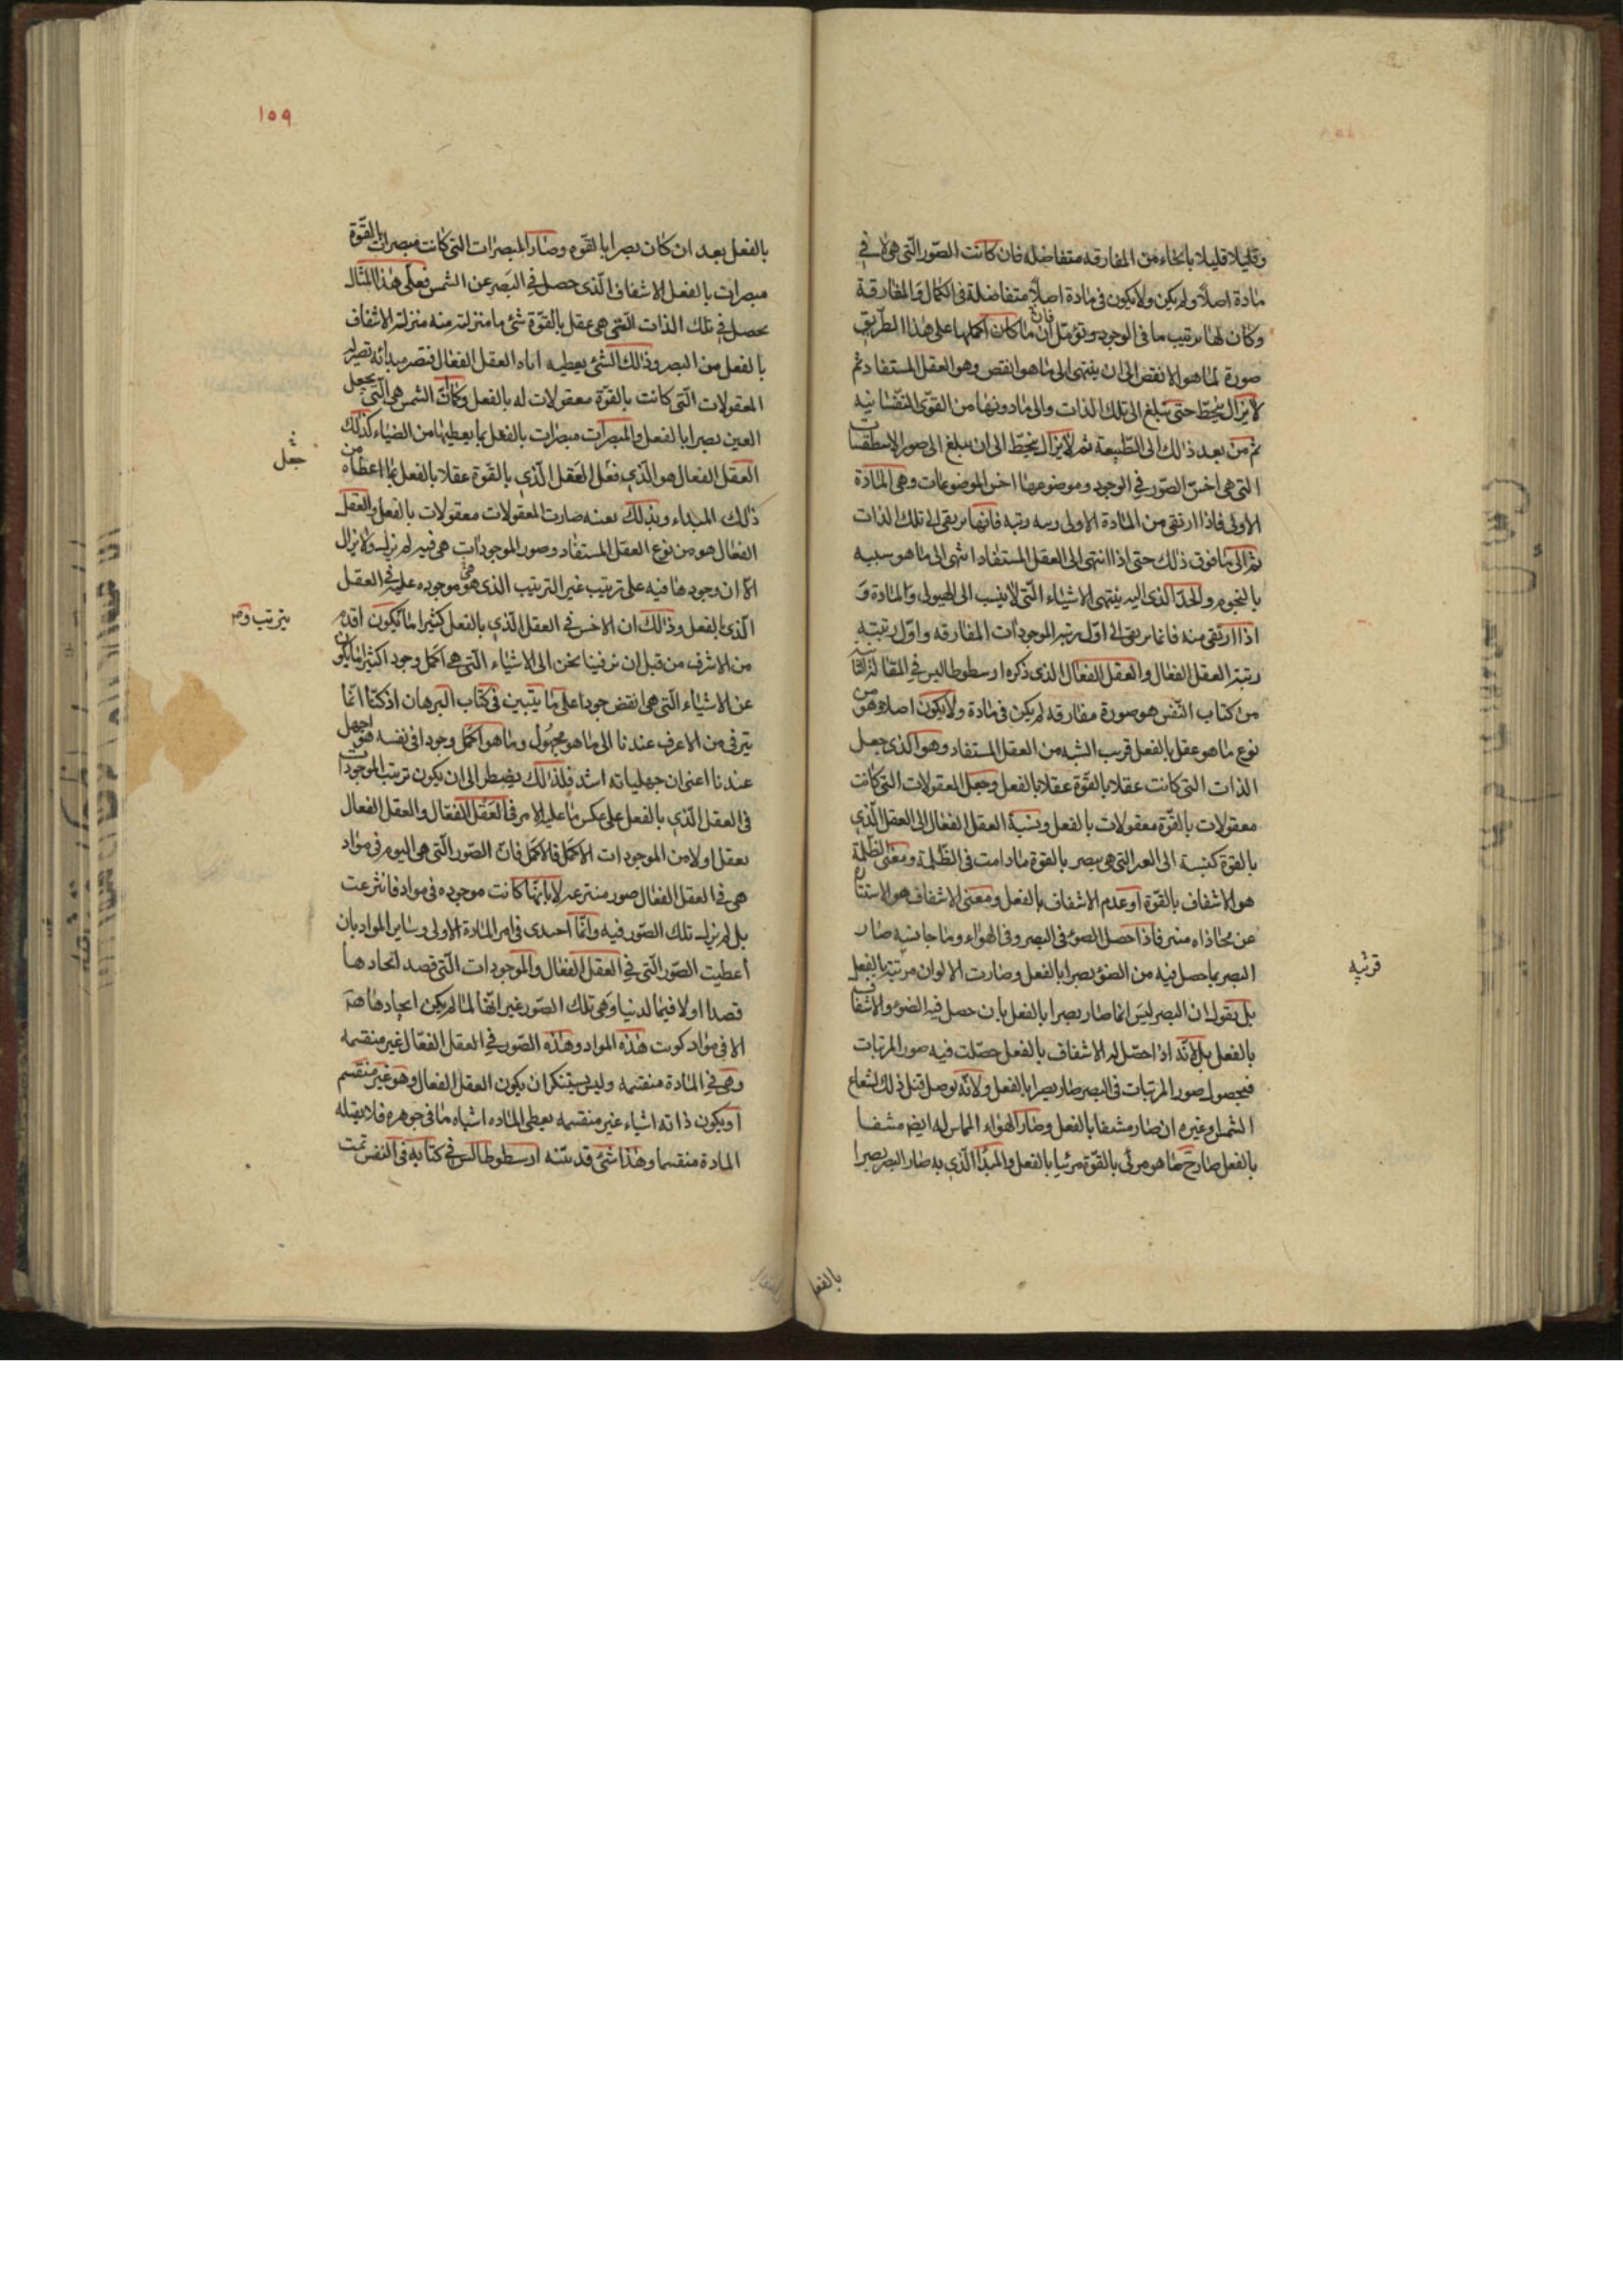 وقليلا قليلا بانحاء من المفارقه متفاضله فان كانت الصّور الّتى هى لا في
مادة اصلا ولم يكن ولا يكون فى مادة اصلا متفاضلة فى الكمال والمفارقة
وكان لها ترتيب ما فى الوجود وتؤمّل فان ما كان اكملها على هذا الطّريق
صورة لما هو الانقص الى ان ينتهى الى ما هو انقص وهو العقل المستفاد ثم
لا يزال ينحطّ حتّى تبلغ الى تلك الذات والى ما دونها من القوى النّفسانيه
ثم من بعد ذالك الى الطّبيعة ثم لا يزال ينحطّ الى ان يبلغ الى صور الاسطقسات
التى هى اخسّ الصّور في الوجود وموضوعها اخس الموضوعات وهى المادّة
الاولى فاذا ارتقى من المادّة الاولى رتبه رتبه فانها يرتقى الى تلك الذات
ثم الى ما فوق ذلك حتى اذا انتهى الى العقل المستفاد انتهى الى ما هو سبيه
بالنجوم والحدّ الذى اليه ينتهى الاشياء الّتى لا ينسب الى الهيولى والمادة و
اذا ارتقى منه فانما يرتقى الى اوّل رتبه الموجودات المفارقه واوّل رتبته
رتبة العقل الفعّال والعقل الفعّال الذى ذكره ارسطوطاليس في المقالة الثالثة
من كتاب النّفس هو صورة مفارقه لم يكن فى مادة ولا يكون اصلا وهو من
نوع ما هو عقل بالفعل قريب الشبه من العقل المستفاد وهو الّذى جعل
الذات التى كانت عقلا بالقوّة عقلا بالفعل وجعل المعقولات التى كانت
معقولات بالقوّة معقولات بالفعل ونسبة العقل الفعّال الى العقل الّذي
بالقوة كنسبة الى العين التى هى بصر بالقوة مادامت فى الظّلمة ومعنى الظّلمة
هو الاشفاف بالقوّة او عدم الاشفاف بالفعل ومعنى الاشفاف هو الاستنار
عن محاذاه منير فاذا حصل الضوء فى البصر وفى الهواء وما جانبه صار
البصر بما حصل فيه من الضوء بصرا بالفعل وصارت الالوان مرئية بالفعل
بل يقول ان البصر ليس انما صار بصرا بالفعل بان حصل فيه الضوء والاشفاف
بالفعل بل لانّه اذا حصل له الاشفاف بالفعل حصلت فيه صور المرئيات
فبحصول صور المرئيات فى البصر صار بصرا بالفعل ولانّه توصل قبل ذلك لشعاع
الشمس او غيره ان صار مشفا بالفعل وصار الهواء المماس له ايضا مشفا
بالفعل صار ح ما هو مرئى بالقوّة مرئيا بالفعل والمبدأ الّذي به صار البصر بصرا
قريبه
بالفعل
١٥٩
بالفعل بعد ان كان بصرا بالقوه وصار المبصرات التى كانت مبصرات بالقوّة
مبصرات بالفعل الاشفاف الّذى حصل في البصر عن الشمس فعلى هذا المثال
يحصل في تلك الذات الّتى هى عقل بالقوّة شئ ما منزلته منه منزلة الاشفاف
بالفعل من البصر وذالك الشئ يعطيه اياه العقل الفعّال فتصير مبدائه تصير له
المعقولات الّتى كانت بالقوّة معقولات له بالفعل وكما انّ الشمس هى الّتى يجعل
العين بصرا بالفعل والمبصرات مبصرات بالفعل بما يعطيها من الضياء كذالك
العقل الفعال هو الّذي فعل العقل الّذي بالقوة عقلا بالفعل بما اعطاه من
ذلك المبداء وبذلك بعينه صارت المعقولات معقولات بالفعل والعقل
الفعّال هو من نوع العقل المستفاد وصور الموجودات هى فيه لم تزل ولا يزال
الّا ان وجودها فيه على ترتيب غير الترتيب الذى هى موجوده عليه فى العقل
الّذى بالفعل وذالك ان الاخس في العقل الّذي بالفعل كثيرا ما يكون اقدم
من الاشرف من قبل ان ترقينا نحن الى الاشياء الّتى هى اكمل وجودا كثيرا ما يكون
عن الاشياء الّتى هى انقص وجودا على ما يتبين فى كتاب البرهان اذ كنا انّما
يترقى من الاعرف عندنا الى ما هو مجهول وما هو اكمل وجودا فى نفسه هو اجهل
عندنا اعنى ان جهلنا به اشد فلذلك يضطر الى ان يكون ترتيب الموجودات
فى العقل الّذي بالفعل على عكس ما عليه الامر فى العقل الفعّال والعقل الفعال
يعقل اولا من الموجودات الاكمل فالاكمل فانّ الصّور الّتى هى اليوم فى موادّ
هى فى العقل الفعّال صور منتزعه لا بانّها كانت موجوده فى مواد فانتزعت
بل لم تزل تلك الصّور فيه وانّما احتذى فى امر المادّة الاولى وسائر المواد بان
أعطيت الصّور الّتى في العقل الفعّال والموجودات الّتى قصد ايجادها
قصدا اولا فيما لدينا وهى تلك الصّور غير انّها لما لم يكن ايجادها هنا
الا فى مواد كونت هذه المواد وهذه الصّور في العقل الفعّال غير منقسمه
وهى في المادّة منقسمه وليس يستنكر ان يكون العقل الفعال وهو غير منقسم
او يكون ذاته اشياء غير منقسمه يعطى المادّه اشباه ما فى جوهره فلا يقبله
المادة منقسما وهذا شئ قد بيّنه ارسطوطاليس في كتابه فى النّفس تمت
جعل